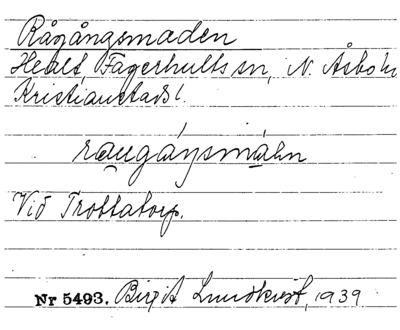 Rågångsmaden
Healt, Fagerhults sn, N. Åsbo hd
Kristianstads l.
raugáŋsmáhn
Vid Trottatorp.
Nr 5493. Birgit Lundkvist, 1939